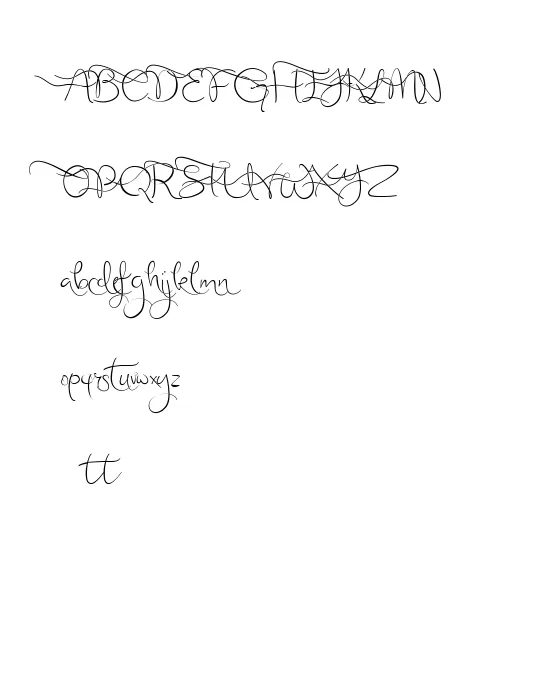 ABCDEFGHIJKLMN
OPQRSTUVWXYZ
abcdefghijklmn
opqrstuvwxyz
tt